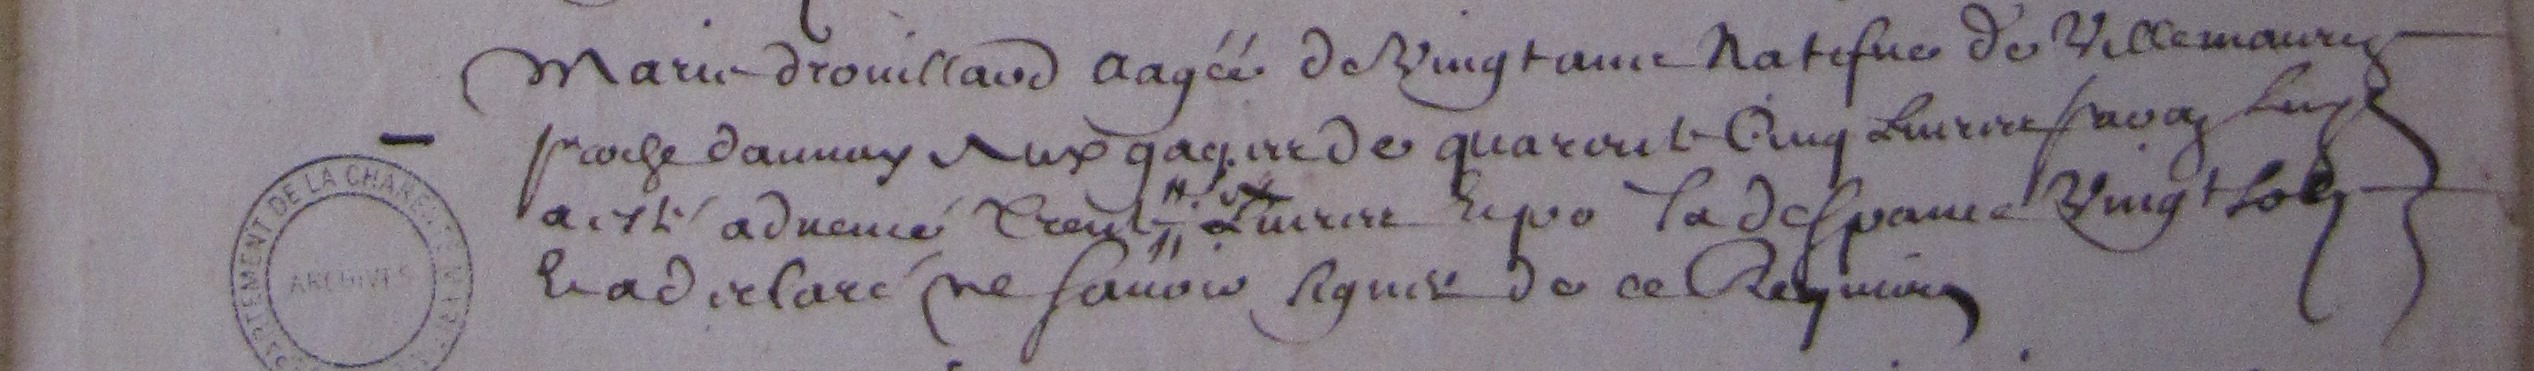 Marie drouillard aagée de Vingt ans Natifue de Villemauru
proche daunay Aux gages de quarante Cinq Liures sur quoy Luy
a esté aduencé Trente Liures Et po.r sa despance Vingt sols
Et a declaré ne sauoir signer de ce Requise
DEPARTEMENT DE LA CHARENTE
ARCHIVES